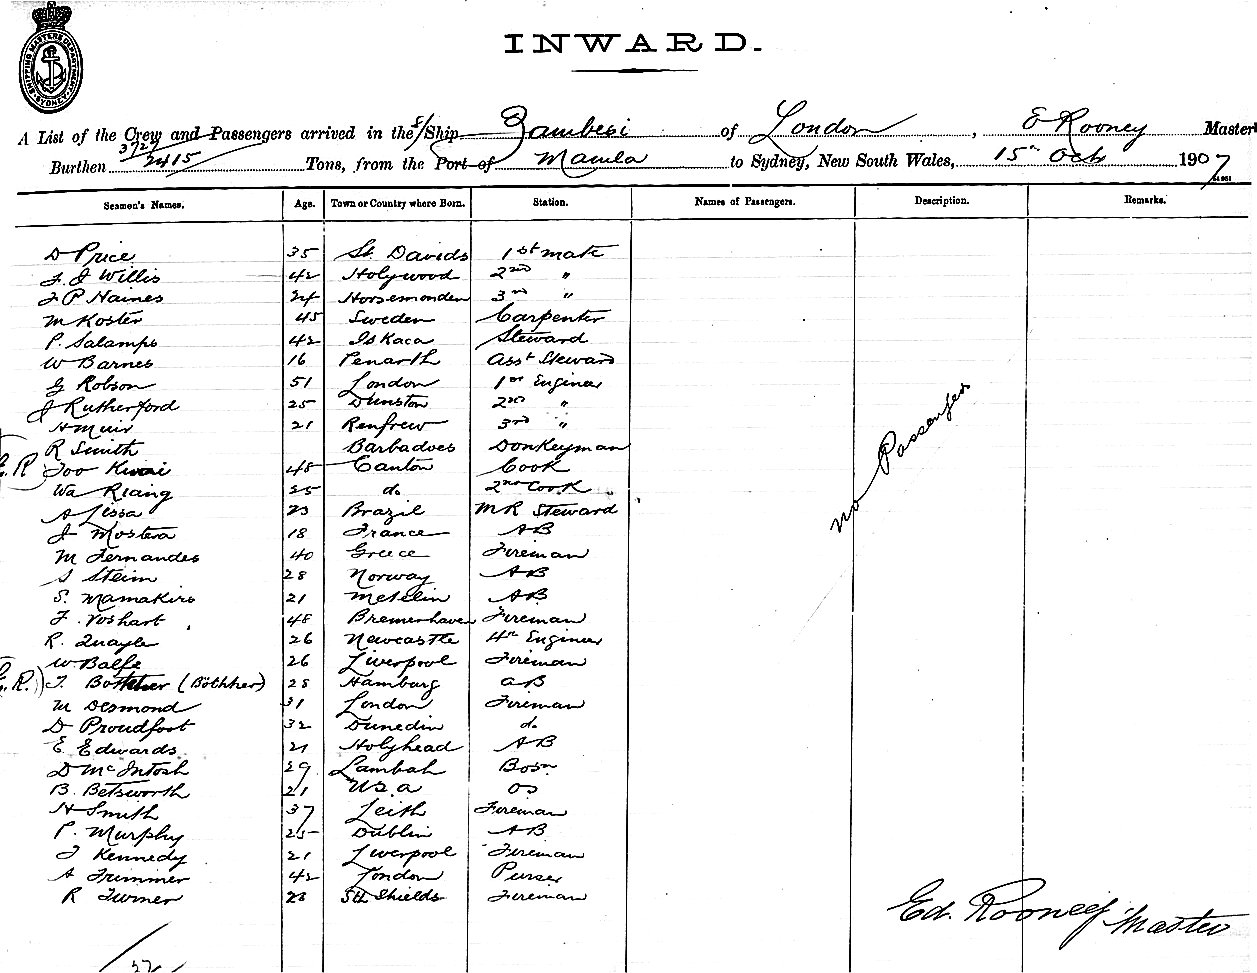 SHIPPING MASTERS DEPARTMENT SYDNEY
INWARD.
A List of the Crew and Passengers arrived in the S/Ship Zambesi of London, E Rooney Master
Burthen 3727 / 2415 Tons, from the Port of Manila to Sydney, New South Wales, 15th Oct 1907
Seamen's Names. Age. Town or Country where Born. Station. Names of Passengers. Description. Remarks.
D Price 35 St. Davids 1st mate
J. J Willis 42 Holywood 2nd "
J P Haines 24 Horsemonden 3rd "
M Koster 45 Sweden Carpenter
P. Salamps 42 Steward
W Barnes 16 Penarth Asst Steward
G Robson 51 London 1st Engineer
J Rutherford 25 Dunston 2nd "
H Muir 21 Renfrew 3rd "
R Smith Barbadoes Donkeyman
Foo Kwai 48 Canton Cook
Wa Kiang 25 do 2nd Cook
A Lissa 23 Brazil M R Steward
J Mostera 18 France AB
M Fernandes 40 Greece Fireman
S Steim 28 Norway AB
S. Mamakiro 21 Metelin AB
F. Voshart 48 Bremerhaven Fireman
R. Quayle 26 Newcastle 4th Engineer
W Balfe 26 Liverpool Fireman
T. (Böthher) 28 Hamburg AB
M Desmond 31 London Fireman
D Proudfoot 32 Dunedin do
E Edwards 21 Holyhead AB
D McIntosh 29 Lambah Bosn
B. Betsworth 21 USA OS
H Smith 37 Leith Fireman
P. Murphy 25 Dublin AB
J Kennedy 21 Liverpool Fireman
A Trimmer 42 London Purser
R Turner 23 Sth Shields Fireman
no Passengers
Ed. Rooney Master